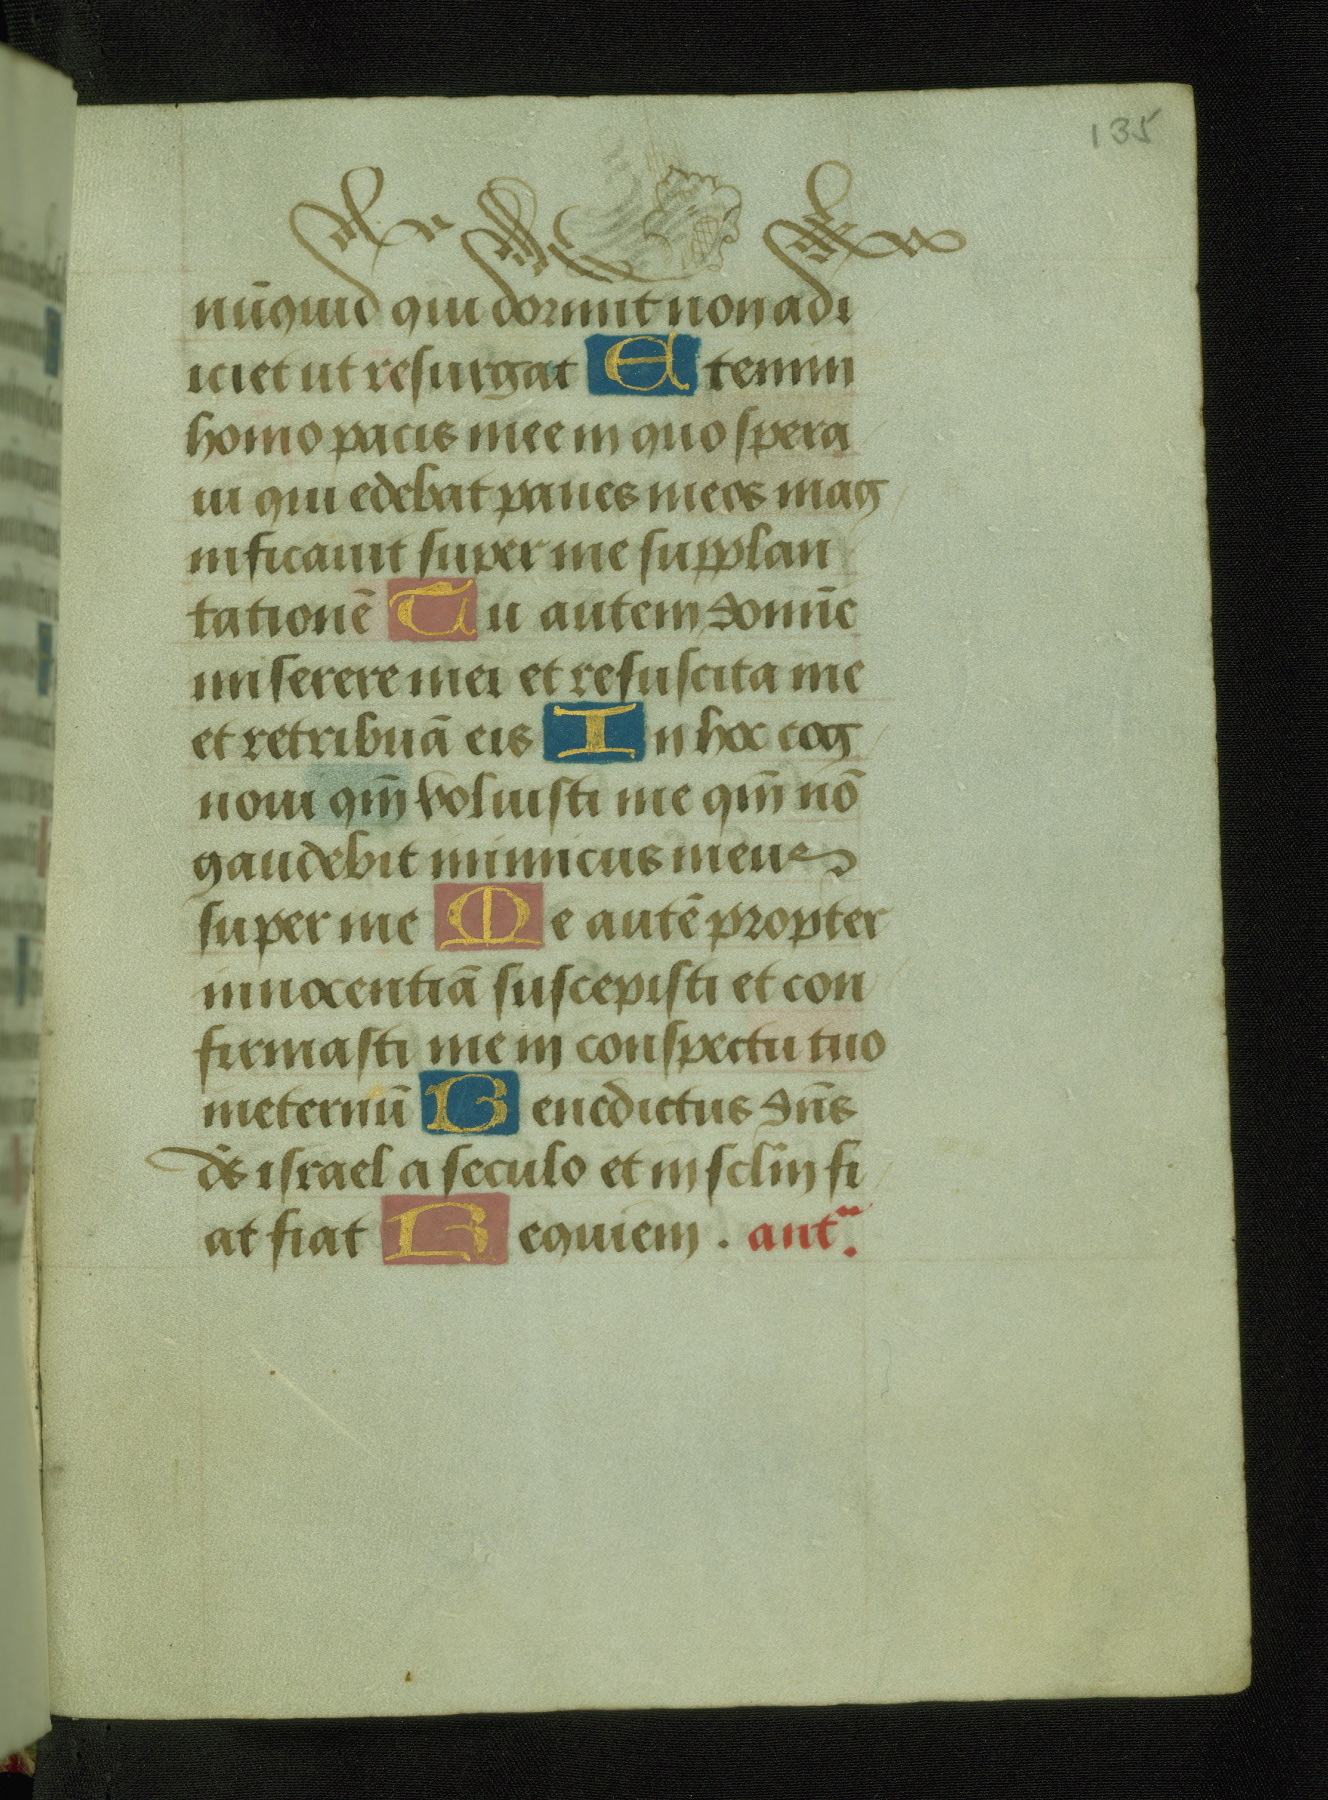 135
nūquid qui dormit non adi
iciet ut resurgat Etenim
homo pacis mee in quo spera
ui qui edebat panes meos mag
nificauit super me supplan
tationē Tu autem domīe
miserere mei et resuscita me
et retribuā eis In hoc cog
noui qm̄ voluisti me qm̄ nō
gaudebit inimicus meus
super me Me autē propter
innocentiā suscepisti et con
firmasti me in conspectu tuo
ineternū Benedictus dn̄s
ds̄ israel a seculo et in sclm̄ fi
at fiat Requiem . ant.